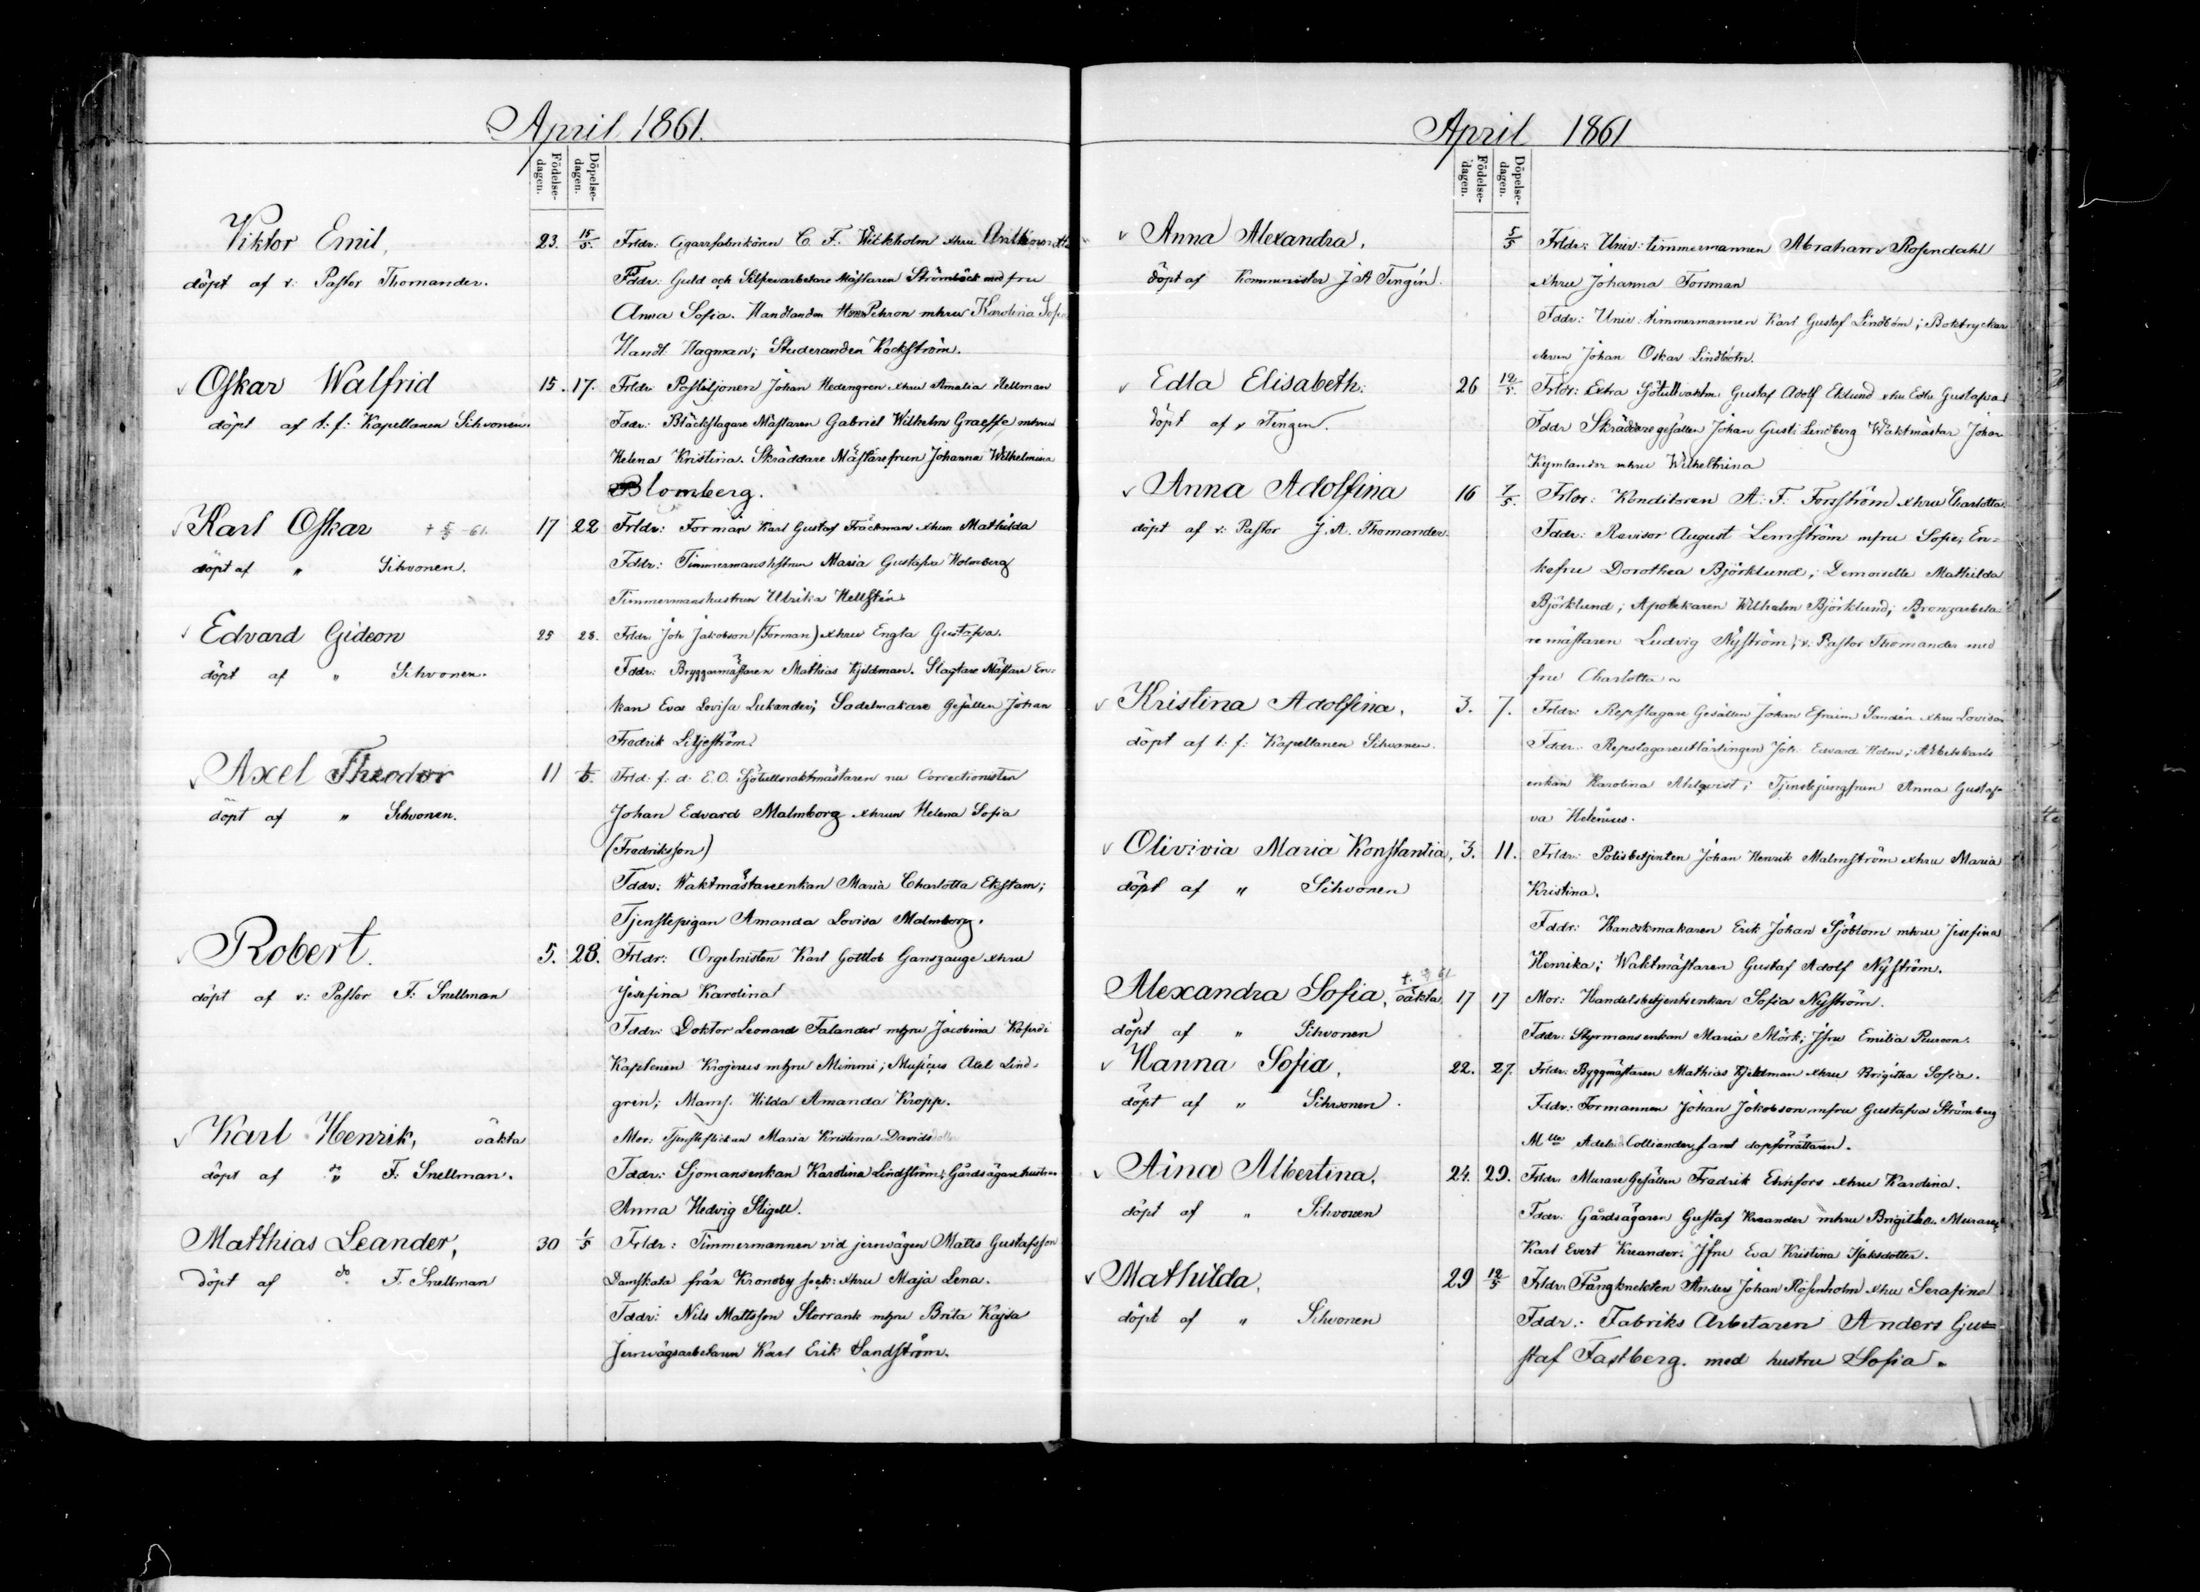 April 1861.
Födelse-
dagen.
Döpelse-
dagen.
Viktor Emil,
döpt af v: Pastor Thomander.
23. 15/5.
Frldr: Cigarrfabrikören C. F. Wickholm xhru
Fddr: Guld och Silfverarbetare Mästaren Strömbäck med fru
Anna Sofia. Handlanden Pehron mhru Karolina Sofia
Handl: Hagman; Studeranden Kockström.
Oskar Walfrid
döpt af t: f: Kapellanen Sihvonen.
15. 17.
Frldr: Postiljonen Johan Hedengren xhru Amalia Hellman
Fddr: Bläckslagare Mästaren Gabriel Wilhelm Graeffe mhru
Helena Kristina. Skräddare Mästarefrun Johanna Wilhelmina
Blomberg.
Karl Oskar + 5/5 61.
döpt af " Sihvonen.
17 22
Frldr: Forman Karl Gustaf Träckman xhru Mathilda
Fddr: Timmermanshstrun Maria Gustafva Holmberg
Timmermanshustrun Ulrika Hellstén
Edvard Gideon
döpt af " Sihvonen.
25 28.
Frldr: Joh Jakobson (Forman) xhru Engla Gustafva.
Fddr: Bryggarmästaren Mathias Kjeldman. Slagtare Mästare En-
kan Eva Lovisa Lukander; Sadelmakare Gesällen Johan
Fredrik Liljeström.
Axel Theodor
döpt af " Sihvonen.
11 1/5.
Frld: f: d: E.O. Sjötullsvaktmästaren nu Correctionisten
Johan Edvard Malmborg xhrun Helena Sofia
(Fredriksson)
Fddr: Waktmästareenkan Maria Charlotta Ekstam;
Tjenstepigan Amanda Lovisa Malmborg.
Robert.
döpt af v: Pastor F: Snellman
5. 28.
Frldr: Orgelnisten Karl Gottlob Ganszauge xhru
Josefina Karolina
Fddr: Doktor Leonard Falander mhru Jacobina
Kaptenen Krogerus mhru Mimmi; Musicus Axel Lind-
gren; Mams. Hilda Amanda Kropp.
Karl Henrik, oäkta
döpt af do F: Snellman.
Mor: Tjensteflickan Maria Kristina Davidsdotter
Fddr: Sjömansenkan Karolina Lindström; Gårdsägarehustrun
Anna Hedvig Stigell.
Matthias Leander,
döpt af do F. Snellman
30 1/5
Frldr: Timmermannen vid jernvägen Matts Gustafsson
Damskata från Kronoby sock: xhru Maja Lena.
Fddr: Nils Mattsson Storrank mhru Brita Kajsa
Jernvägsarbetaren Karl Erik Sandström.
April 1861
Födelse-
dagen.
Döpelse-
dagen.
Anna Alexandra,
döpt af Kommunister J A Tengén.
5/5
Frldr: Univ: timmermannen Abraham Rosendahl
xhru Johanna Forsman
Fddr: Univ: timmermannen Karl Gustaf Lindbom; Boktryckar
eleven Johan Oskar Lindbom.
Edla Elisabeth.
döpt af v Tengen.
26 12/5.
Frldr: Extra Sjötullvaktm: Gustaf Adolf Eklund xhru Edla Gustafva
Fddr Skräddaregesällen Johan Gust: Lindberg Waktmästar Johan
Kymlander mhru Wilhelmina
Anna Adolfina
döpt af v: Pastor J. A. Thomander.
16 7/5.
Frldr: Konditoren A. F. Forsström xhru Charlotta.
Fddr: Revisor August Lemström mfru Sofie; En-
kefru Dorothea Björklund; Demoiselle Mathilda
Björklund; Apotekaren Wilhelm Björklund; Bronzarbeta-
re mästaren Ludvig Nyström; v. Pastor Thomander med
fru Charlotta
Kristina Adolfina,
döpt af t: f: Kapellanen Sihvonen.
3. 7.
Frldr: Repslagare Gesällen Johan Efraim Sandén xhru Lovisa
Fddr: Repslagareutlärlingen Joh: Edvard Holm; Arbetskarls
enkan Karolina Ahlqvist; Tjenstejungfrun Anna Gustaf-
va Helenius.
Olivivia Maria Konstantia,
döpt af " Sihvonen
3. 11.
Frldr: Polisbetjenten Johan Henrik Malmström xhru Maria
Kristina.
Fddr: Handskmakaren Erik Johan Sjöblom mhru Josefina
Henrika; Waktmästaren Gustaf Adolf Nyström.
Alexandra Sofia, oäkta
döpt af " Sihvonen
17 17
Mor: Handelsbetjentsenkan Sofia Nyström.
Fddr: Styrmansenkan Maria Mörk; Jfru Emilia
Hanna Sofia,
döpt af " Sihvonen.
22. 27.
Frldr: Byggmästaren Mathias Kjeldman xhru Brigitha Sofia.
Fddr: Formannen Johan Jakobson mfru Gustafva Strömberg
Mlle Adele Colliander samt dopförrättaren.
Aina Albertina,
döpt af " Sihvonen
24. 29.
Frldr: Murare Gesällen Fredrik Ehnfors xhru Karolina.
Fddr. Gårdsägaren Gustaf Kreander mhru Brigitha. Murare
Karl Evert Kreander. Jfru Eva Kristina Isaksdotter.
Mathilda,
döpt af " Sihvonen
29 12/5
Frldr: Fångknekten Anders Johan Rosenholm xhru Serafina
Fddr: Fabriks Arbetaren Anders Gu-
staf Fastberg. med hustru Sofia.